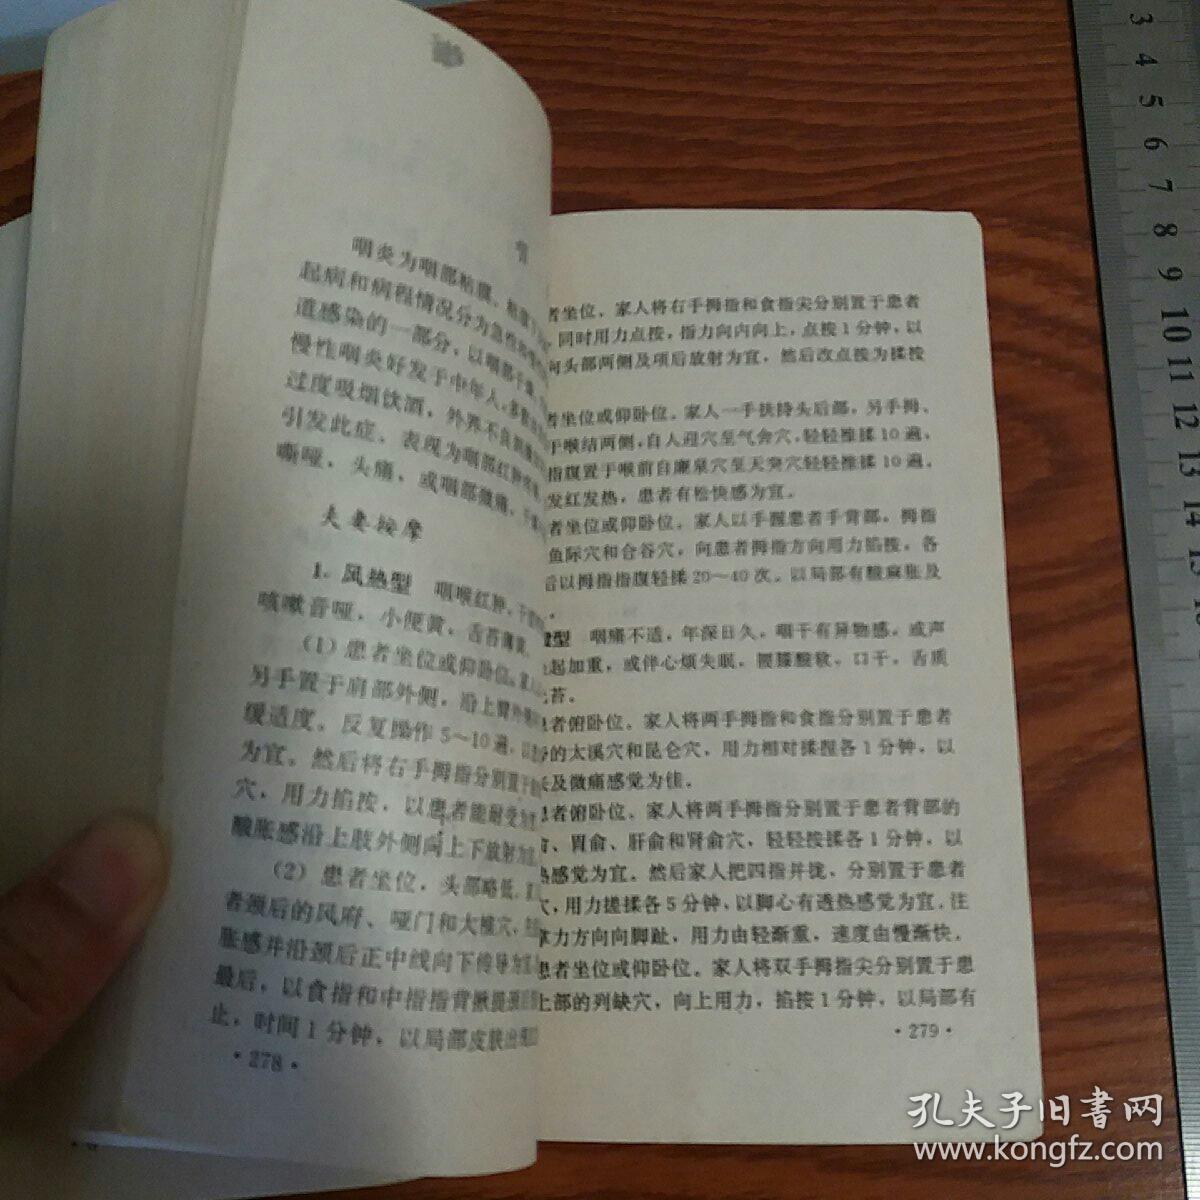 咽炎为咽部粘膜、粘膜下
起病和病程情况分为急性和
道感染的一部分，以咽部干燥
慢性咽炎好发于中年人，多
过度吸烟饮酒，外界不良刺激
引发此症。表现为咽部红肿
嘶哑，头痛，或咽部微痛，干
夫妻按摩
1. 风热型 咽喉红肿、干
咳嗽音哑，小便黄，舌苔薄黄
(1) 患者坐位或仰卧位。家人
另手置于肩部外侧，沿上臂外侧
缓适度。反复操作5～10遍，以
为宜。然后将右手拇指分别置于
穴，用力掐按，以患者能耐受为度
酸胀感沿上肢外侧向上下放射为宜。
(2) 患者坐位，头部略低，家
者颈后的风府、哑门和大椎穴，
胀感并沿颈后正中线向下传导为宜。
最后，以食指和中指指背揪提颈
止，时间1分钟，以局部皮肤出现
·278·
者坐位、家人将右手拇指和食指尖分别置于患者
，同时用力点按，指力向内向上，点按1分钟，以
向头部两侧及项后放射为宜，然后改点按为揉按
者坐位或仰卧位。家人一手扶持头后部，另手拇、
于喉结两侧，自人迎穴至气舍穴，轻轻推揉10遍，
指腹置于喉前自廉泉穴至天突穴轻轻推揉10遍。
发红发热，患者有松快感为宜。
者坐位或仰卧位。家人以手握患者手背部。拇指
鱼际穴和合谷穴，向患者拇指方向用力掐按，各
后以拇指指腹轻揉20～40次。以局部有酸麻胀及
型 咽痛不适，年深日久，咽干有异物感，或声
起加重，或伴心烦失眠，腰膝酸软，口干，舌质
苔。
患者俯卧位。家人将两手拇指和食指分别置于患者
的太溪穴和昆仑穴，用力相对揉捏各1分钟，以
及微痛感觉为佳。
患者俯卧位。家人将两手拇指分别置于患者背部的
俞、胃俞、肝俞和肾俞穴，轻轻按揉各1分钟，以
热感觉为宜。然后家人把四指并拢，分别置于患者
穴，用力搓揉各5分钟，以脚心有透热感觉为宜。注
掌力方向向脚趾，用力由轻渐重，速度由慢渐快。
患者坐位或仰卧位。家人将双手拇指尖分别置于患
上部的列缺穴，向上用力，掐按1分钟，以局部有
·279·
3
4
5
6
7
8
9
10
11
12
13
14
15
孔夫子旧书网
www.kongfz.com